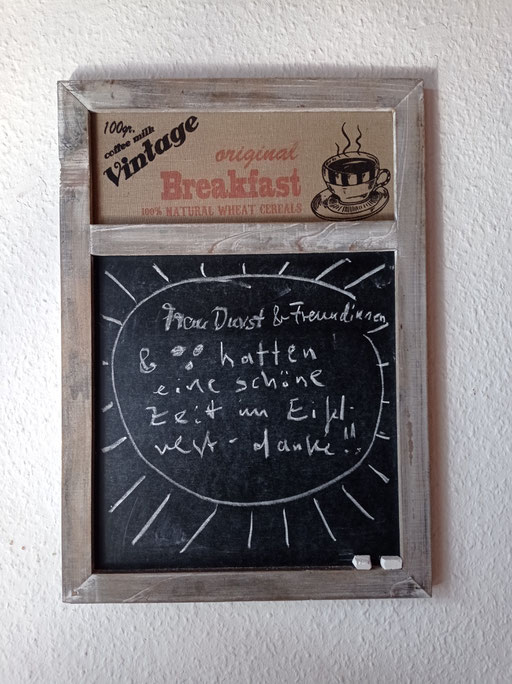 100gr.
coffee milk
Vintage
original
Breakfast
100% NATURAL WHEAT CEREALS
Frau Durst & Freundinnen
& hatten
eine schöne
Zeit im Eifel-
nest - danke!!